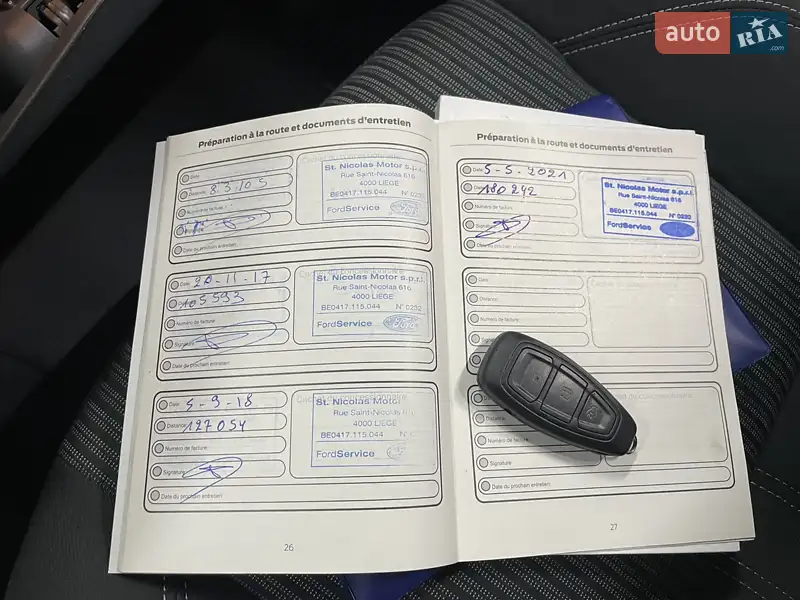 auto RIA .com
Préparation à la route et documents d'entretien
Date
Distance 83105
Numéro de facture
Date du prochain entretien
St. Nicolas Motor s.p.r.l.
Rue Saint-Nicolas 616
4000 LIEGE
BE0417.115.044 N° 0232
FordService Ford
Date 20-11-17
Distance 105593
Numéro de facture
Signature
Date du prochain entretien
Cachet du concessionnaire
St. Nicolas Motor s.p.r.l.
Rue Saint-Nicolas 616
4000 LIEGE
BE0417.115.044 N° 0232
FordService Ford
Date 5-9-18
Distance 127054
Numéro de facture
Signature
Date du prochain entretien
Cachet du concessionnaire
St. Nicolas Motor
Rue Saint-Nicolas
4000 LIEGE
BE0417.115.044
FordService
26
Préparation à la route et documents d'entretien
Date 5-5-2021
Distance 180242
Numéro de facture
Signature
Date du prochain entretien
St. Nicolas Motor s.p.r.l.
Rue Saint-Nicolas 616
4000 LIEGE
BE0417.115.044 N° 0232
FordService
Date
Distance
Numéro de facture
Signature
Numéro de facture
Signature
Date du prochain entretien
27